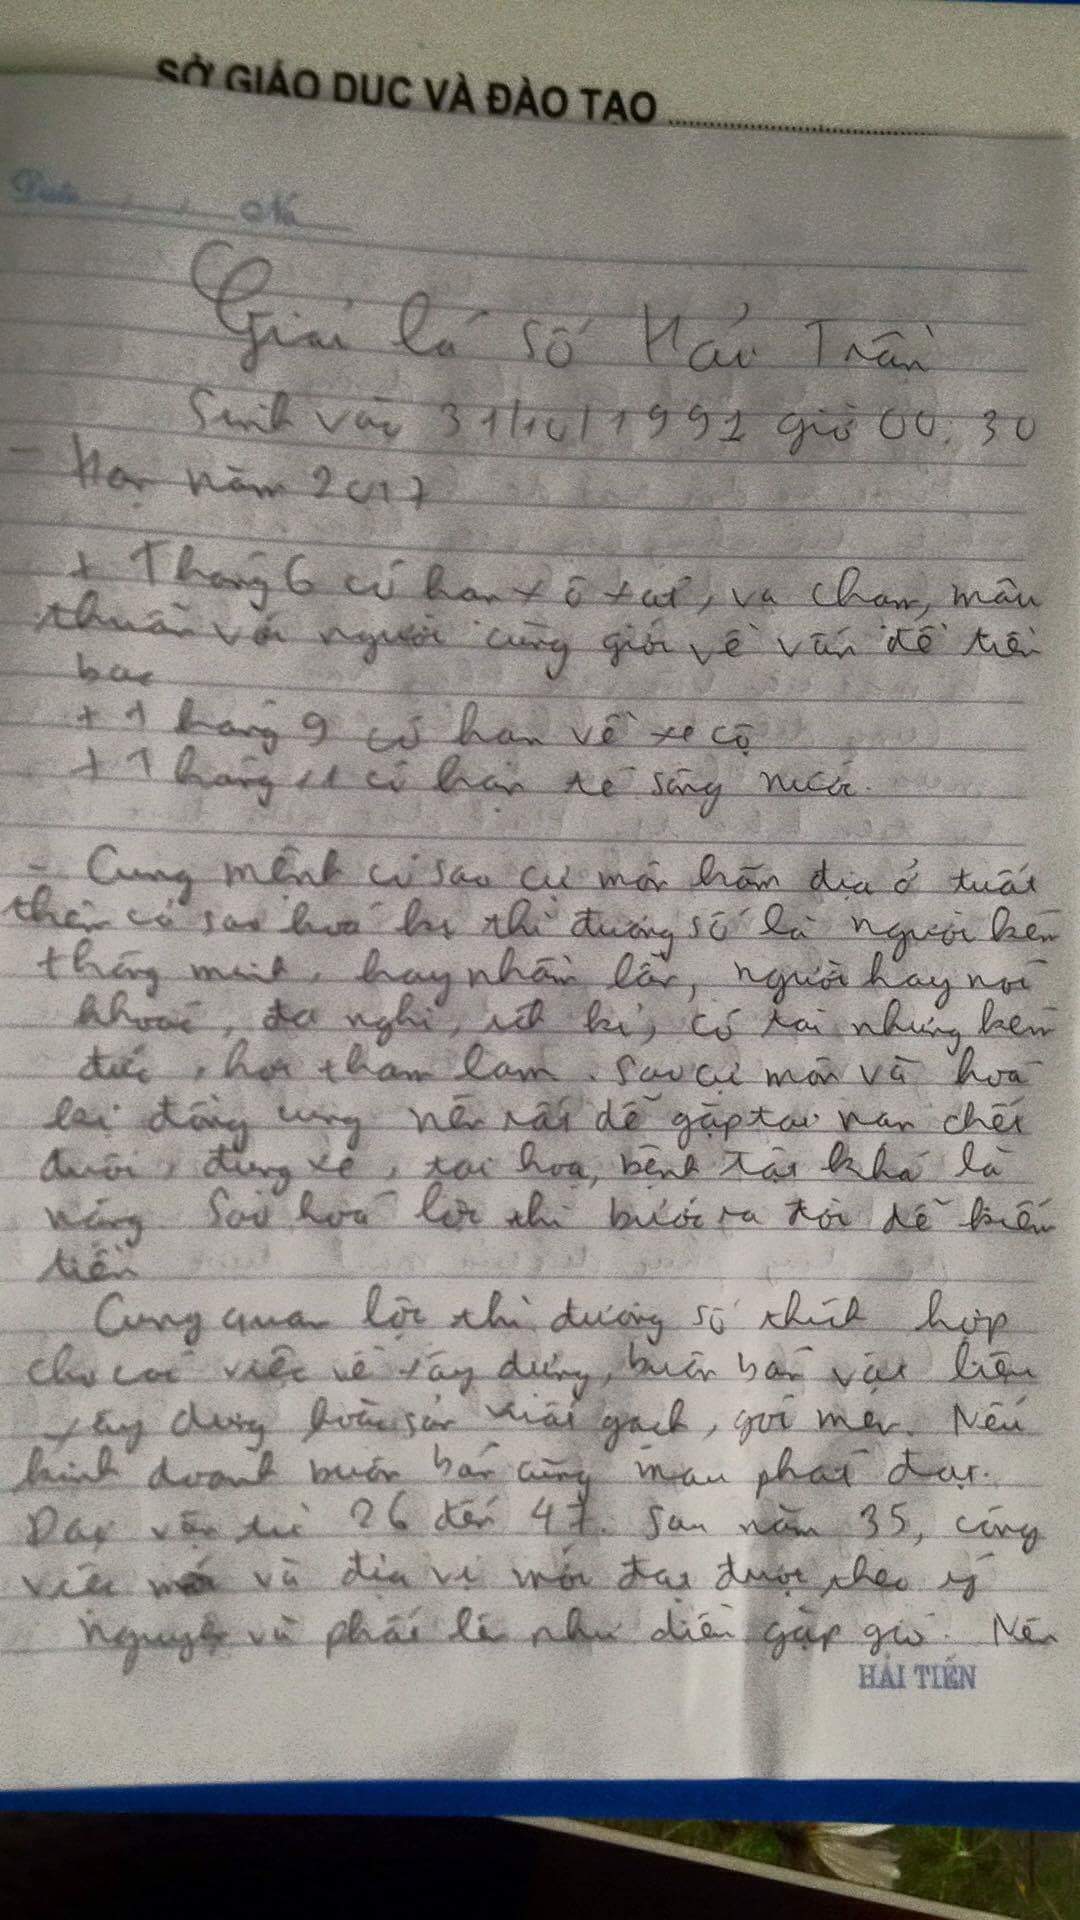 SỞ GIÁO DỤC VÀ ĐÀO TẠO
Date No
Giải lá số Hảo Trần
Sinh vào 31/10/1991 giờ 00:30
- Hạn năm 2017
+ Tháng 6 có hạn xô xát, va chạm, mâu
thuẫn với người cùng giới về vấn đề tiền
bạc
+ Tháng 9 có hạn về xe cộ
+ Tháng 11 có hạn về sông nước.
- Cung mệnh có sao cự môn hãm địa ở tuất
thêm có sao hoá kị thì đương số là người kém
thông minh, hay nhầm lẫn, người hay nói
khoác, đa nghi, ích kỉ, có tài nhưng kém
đức, hơi tham lam. Sao cự môn và hoá
kị đồng cung nên rất dễ gặp tai nạn chết
đuối, đụng xe, tai hoạ, bệnh tật khá là
nặng. Sao hoá lộc thì bước ra đời dễ kiếm
tiền
Cung quan lộc thì đương số thích hợp
cho các việc về xây dựng, buôn bán vật liệu
xây dựng gạch, Nếu
kinh doanh buôn bán cũng mau phát đạt.
Đại vận từ 26 đến 47. Sau năm 35, công
việc và địa vị mới đạt được theo ý
nguyện và phất lên như diều gặp gió. Nên
HẢI TIẾN